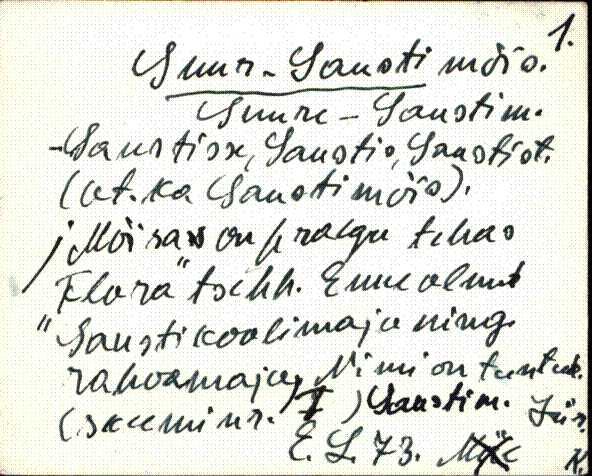 1.
Suur-Sausti mõis.
Suure-Saustim.
-Saustisse, Saustis, Saustist.
(üt. ka Saustimõis).
Mõisas on praegu tehas
"Flora" tsehh. Enne olnud
Saustikoolimaja ning
rahvamaja. Nimi on tuntud.
(skeemi nr. I) Saustim. Jür.
E. S. 73. K.